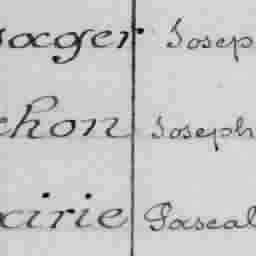 aeger Josep
chon Joseph
cirie Pascal